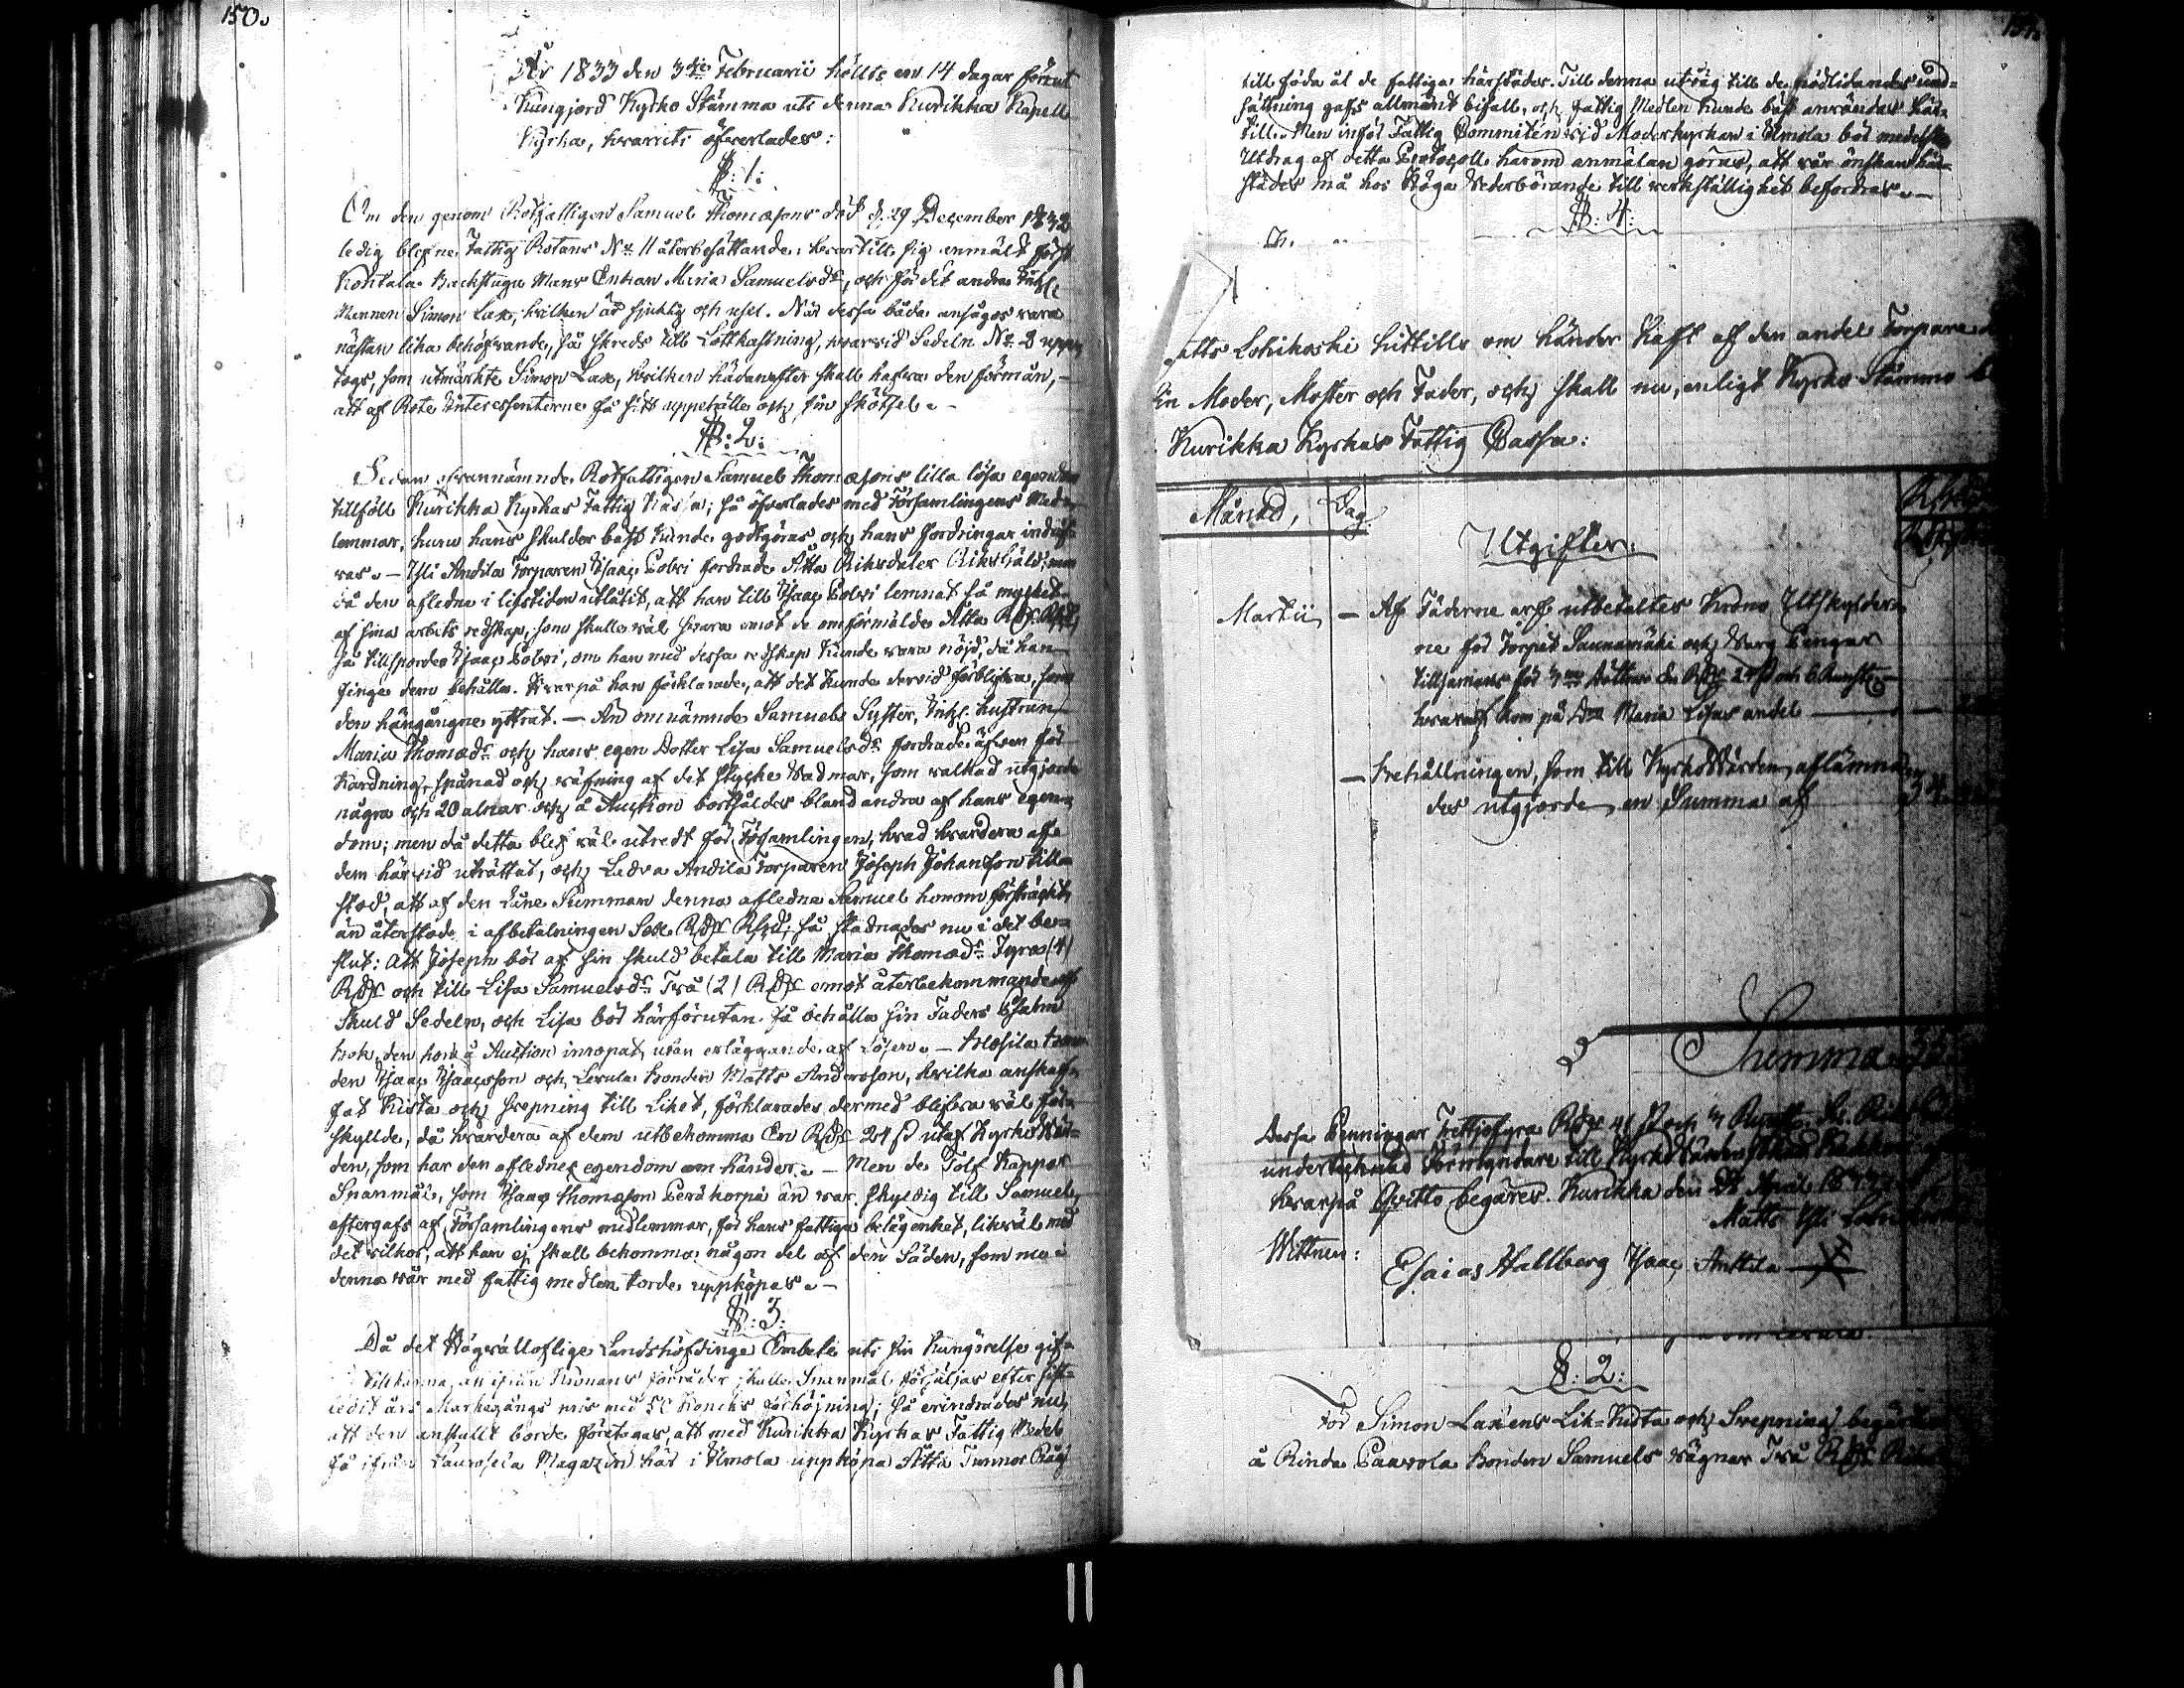 150.
År 1833 den 3die Februarii hölts en 14 dagar förut
kungjord Kyrko Stämma uti denna Kurikka Kapell
Kyrka, hvarvid öfverlades:
§: 1:
Om den genom Rotfattigen Samuel Thomæsons död d. 29 December 1832
ledig blefne Fattig Rotans No 11 återbesättande, hvartill sig anmält först
Kontala Backstugu Mans Enkan Maria Samuelsdr, och för det andra Inhs
Mannen Simon Lax, hvilken är sjuklig och usel. När dessa båda ansågos vara
nästan lika behöfvande, så skreds till Lottkastning, hvarvid Sedeln No 2 upp-
togs, som utmärkte Simon Lax, hvilken hädanefter skall hafva den förmån,
att af Rote Interessenterne få sitt uppehälle och sin skötsel.
§: 2:
Sedan ofvannämnde Rotfattigen Samuel Thomæsons lilla lösa egendom
tillföll Kurikka Kyrkas Fattig Kassa; så öfverlades med Församlingens Med-
lemmar, huru hans skulder bäst kunde godtgöras och hans fordringar indrif-
vas. – Yli Andila Torparen Isaac Polvi fordrade Åtta Riksdaler Riksgäld; men
då den afledne i lifstiden utlåtit, att han till Isaac Polvi lemnat så mycket
af sina arbets redskap, som skulle väl svara emot de omförmälde Åtta Rdr Rgd,
så tillspordes Isaac Polvi, om han med dessa redskap kunde vara nöjd, då han
finge dem behålla. Hvarpå han förklarade, att det kunde dervid förblifva, som
den hängångne yttrat. – An omnämnde Samuels Syster, Inhs. hustrun
Maria Thomædr och hans egen Dotter Lisa Samuelsdr fordrade äfven för
Kardning, spånad och väfning af det stycke Vadmar, som valkad utgjorde
några och 20 alnar och å Auction bortsåldes bland andra af hans egen-
dom; men då detta blef väl utredt för Församlingen, hvad hvardera af
dem härvid uträttat, och Ledva Andila Torparen Joseph Johansson till-
stod, att af den Låne Summan denna afledna Samuel honom försträckt,
än återstode i afbetalningen Sex Rdr Rgd; så stadnades nu i det be-
slut: Att Joseph bör af sin skuld betala till Maria Thomædr Fyra (4)
Rdr och till Lisa Samuelsdr Två (2) Rdr emot återbekommande af
Skuld Sedeln, och Lisa bör härförutan få behålla sin Faders Psalm
bok, den hon å Auction inropat, utan erläggande af Lösen.
den Isaac Isaacsson och Levula bonden Matts Andersson, hvilka anskaf-
fat Kista och svepning till Liket, förklarades dermed blifva väl för-
skyllde, då hvardera af dem utbekomma En Rdr 24 s utaf Kyrko Vär-
den, som har den aflednes egendom om händer. – Men de Tolf Kappor
Spanmål, som Isaac Thomæson Peräkorpi än var skyldig till Samuel,
eftergafs af Församlingens medlemmar, för hans fattiga belägenhet, likväl med
det vilkor, att han ej skall bekomma någon del af den Säden, som nu i
denna vår med fattig medlen torde uppköpas.
§: 3:
Då det Högvällofliga Landshöfdinge Embetet uti sin Kungörelse gif-
Kronans förråder skulle Spanmål försäljas efter sist-
ledit års Markegångs pris med 50 Kopeks förhöjning; så erindrades nu,
att den anstalt borde företagas, att med Kurikka Kyrkas Fattig Medel
få ifrån Magazin här i Ilmola uppköpa Åtta Tunnor Råg
till föda åt de fattiga härstädes. Till denna utväg till de nödlidandes und-
sättning gafs allmänt bifall, och fattig Medlen kunde bäst användas här-
till. Men inför Fattig Commiteen vid Moderkyrkan i Ilmola bör medelst
Utdrag af detta Protocoll härom anmälan göras, att vår önskan här-
städes må hos Höga Vederbörande till verkställighet befordras.
§: 4:
Matts Lohikoski hittills om händer haft af den andel Torpare
sin Moder, Moster och Fader, och skall nu, enligt Kyrko Stämmo
Kurikka Kyrkas Fattig Cassa:
Månad, Dag
Utgifter:
Martii – Af Fäderne arf utbetaltes Krono Utskylder-
ne för Torpet Saunamäki och Warg Pengar
tillsamans för
hvaraf kom på Maria Lisas andel
– Behållningen, som till Kyrko Värden aflämna-
des utgjorde en Summa af 34
Summa
Dessa Penningar Trettiofyra Rdr
undertecknad Förmyndare till Kyrko Värden
hvarpå Qvitto begäres. Kurikka den
Matts Yli
Wittnen:
Esaias Hallberg Isaac Anttila
§: 2:
För Simon Laxens Lik-Kista och Svepning begärte
å Rinda Paavola bonden Samuels vägnar Två Rdr